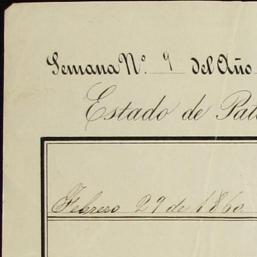 Semana Nº. 9 del Año
Estado de Pat
Febrero 29 de 1860